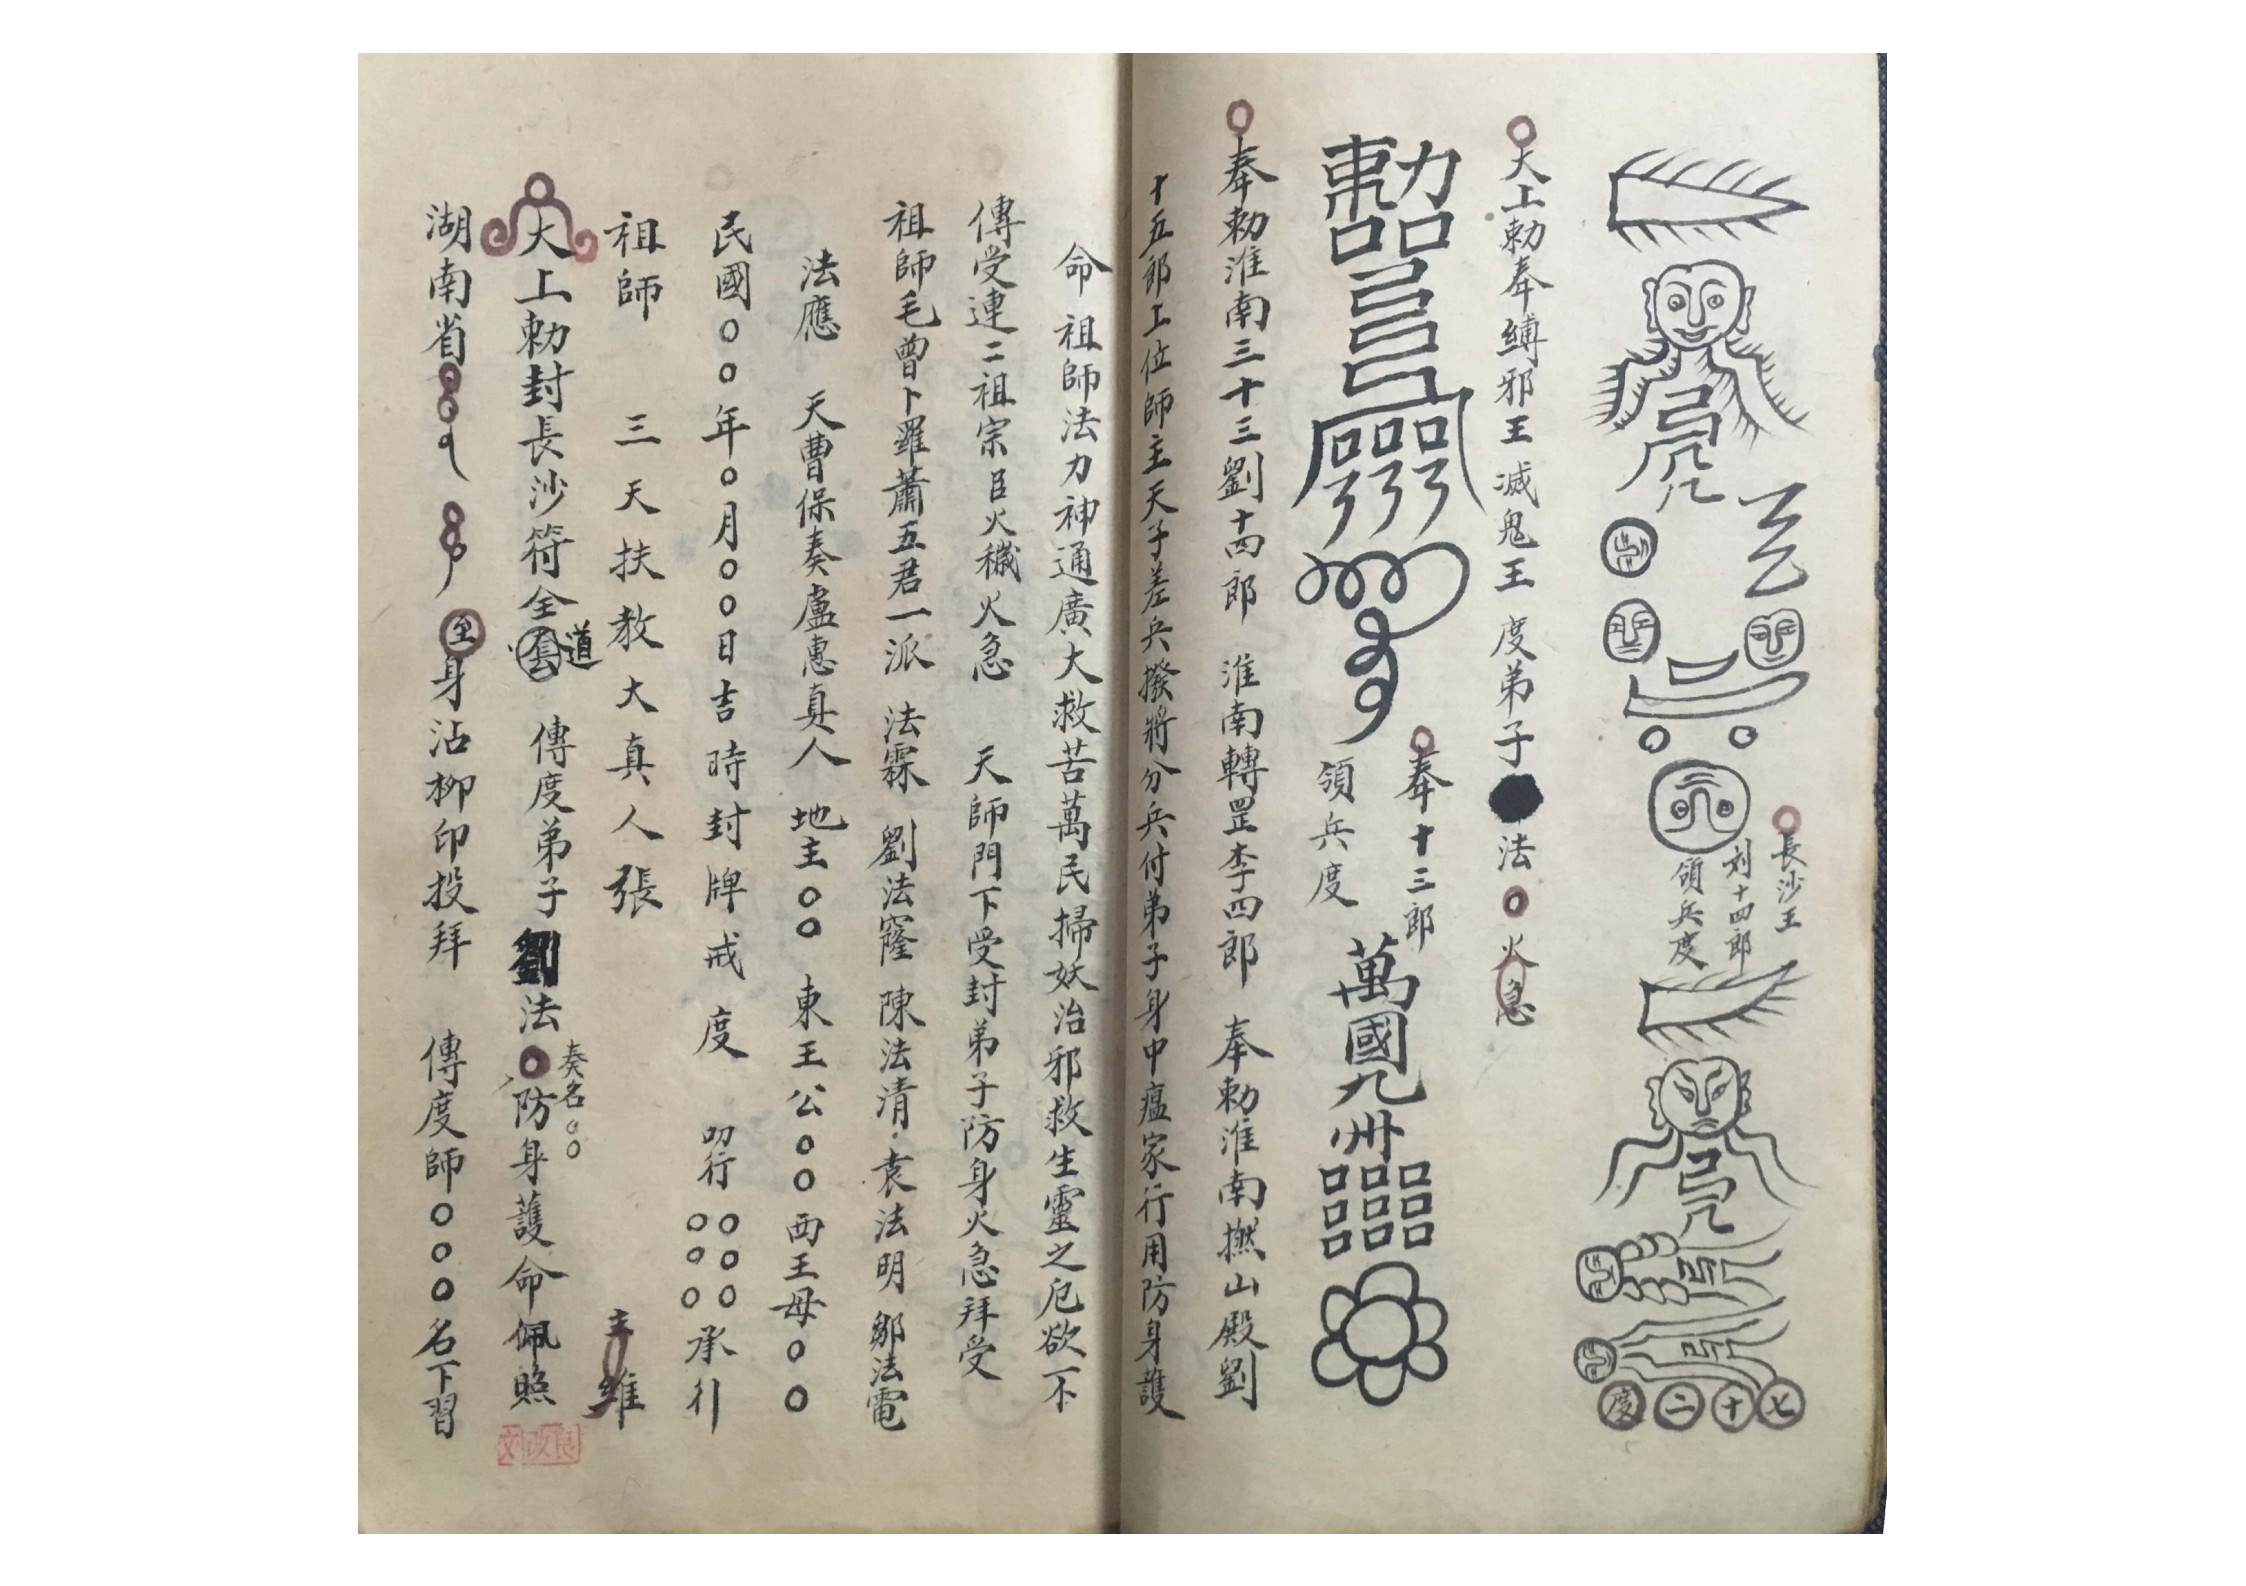 長沙王
刘十四郎
領兵度
度二十七
大上勅奉縛邪王滅鬼王 度弟子 法〇火急
勅
奉十三郎
領兵度
萬國九州
奉勅淮南三十三劉十四郎 淮南轉罡李四郎 奉勅淮南撚山殿劉
十五郎上位師主天子差兵撥將分兵付弟子身中瘟家行用防身護
命 祖師法力神通廣大救苦萬民掃妖治邪救生靈之厄欲不
傳受連二祖宗臣火穢火急 天師門下受封弟子防身火急拜受
祖師毛曾卜羅蕭五君一派 法霖 劉法窿 陳法清 袁法明 鄒法電
法應 天曹保奏盧惠真人 地主〇〇 東王公〇〇 西王母〇〇
民國〇〇年〇月〇〇日吉時封牌戒度 叩行〇〇〇〇〇〇承行
祖師 三天扶教大真人張 主維
大上勅封長沙符全套道 傳度弟子劉法〇奏名〇〇防身護命佩照
湖南省 身沾柳印投拜 傳度師〇〇〇名下習